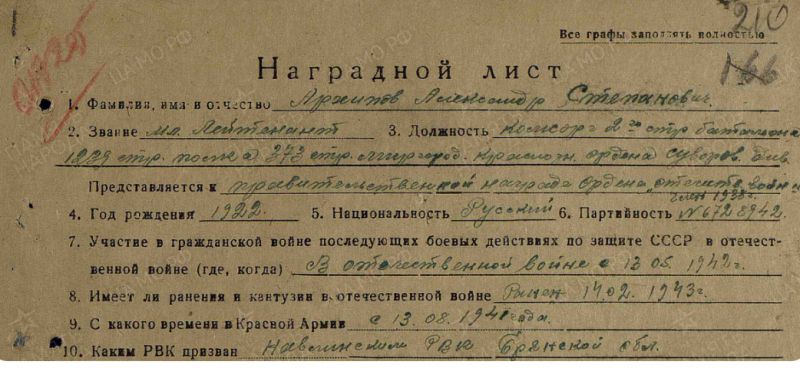 210
Все графы заполнять полностью
166
Наградной лист
1. Фамилия, имя и отчество Архипов Александр Степанович.
2. Звание мл. Лейтенант 3. Должность Комсорг 2го стр батальона
1239 стр. полка 373 стр. миргород. Краснозн. ордена Суворов. див.
Представляется к правительственной награда Ордена „отечеств. войн
член 1938г.
4. Год рождения 1922. 5. Национальность Русский 6. Партийность №6728942.
7. Участие в гражданской войне последующих боевых действиях по защите СССР в отечест-
венной войне (где, когда) В отечественной войне с 13 05. 1942г.
8. Имеет ли ранения и кантузии в отечественной войне Ранен 14.02. 1943г.
9. С какого времени в Красной Армии с 13.08.1941года.
10. Каким РВК призван Навлинским РВК Брянской обл.